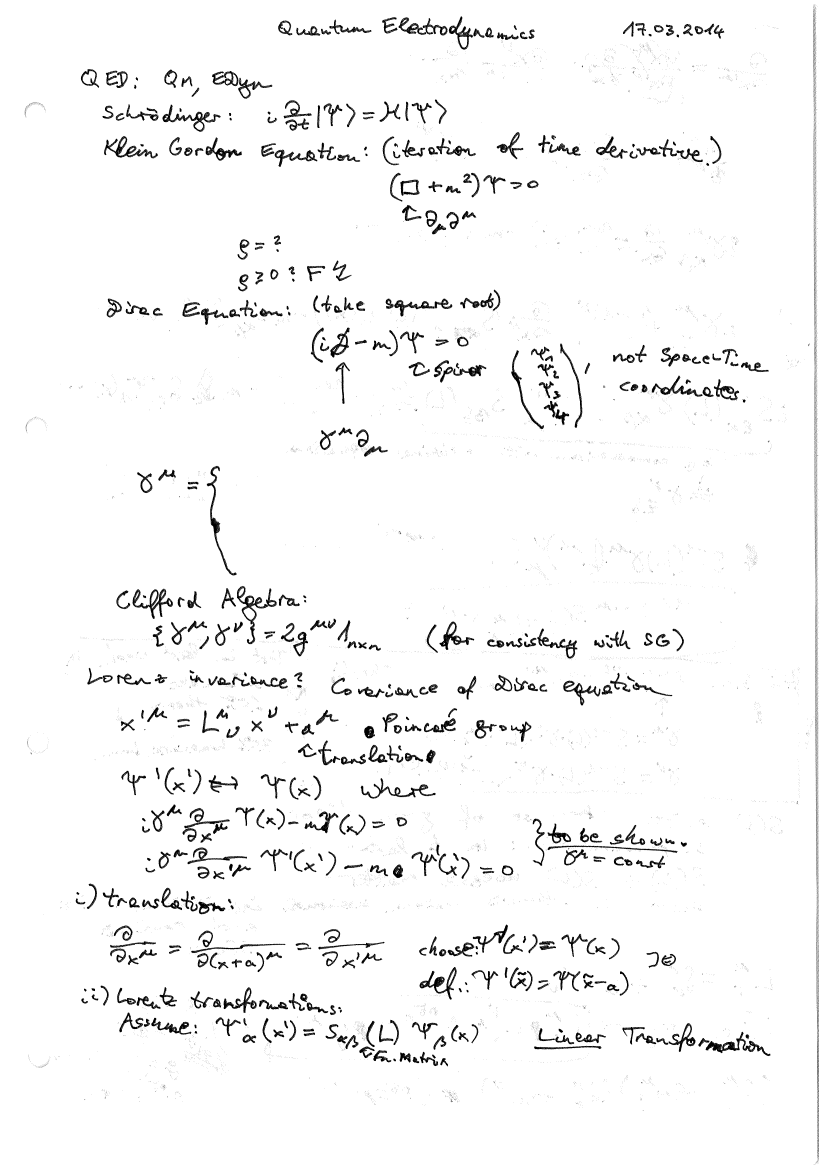 Quantum Electrodynamics 17.03.2014
QED: QM, EDyn
Schrödinger: i ∂/∂t |Ψ⟩ = H|Ψ⟩
Klein Gordon Equation: (iteration of time derivative.)
(□ + m²)Ψ = 0
↑ ∂_μ ∂^μ
ρ = ?
ρ ≥ 0 ? F ↯
Dirac Equation: (take square root)
(i∂̸ - m)Ψ = 0
↑ Spinor (Ψ1 Ψ2 Ψ3 Ψ4), not Space-Time
coordinates.
γ^μ ∂_μ
γ^μ = {
Clifford Algebra:
{γ^μ, γ^ν} = 2g^{μν} 1_{n×n} (for consistency with SG)
Lorenz invariance? Covariance of Dirac equation
x'^μ = L^μ_ν x^ν + a^μ Poincaré group
↑ translation
Ψ'(x') ↔ Ψ(x) where
iγ^μ ∂/∂x^μ Ψ(x) - mΨ(x) = 0
iγ^μ ∂/∂x'^μ Ψ'(x') - m Ψ'(x') = 0 } to be shown.
γ^μ = const
i) translation:
∂/∂x^μ = ∂/∂(x+a)^μ = ∂/∂x'^μ choose: Ψ'(x') = Ψ(x)
def.: Ψ'(x̃) = Ψ(x̃-a)
ii) Lorentz transformations:
Assume: Ψ'_α(x') = S_{αβ}(L) Ψ_β(x) Linear Transformation